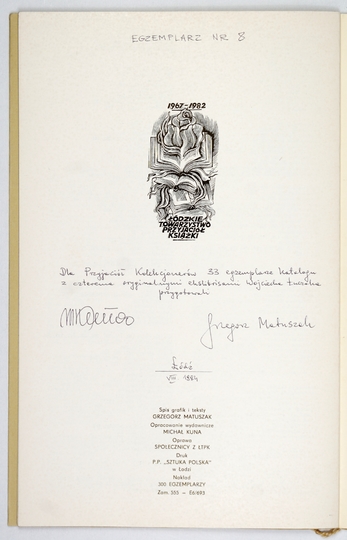 EGZEMPLARZ NR 8
1967-1982
ŁÓDZKIE
TOWARZYSTWO
PRZYJACIÓŁ
KSIĄŻKI
Dla Przyjaciół Kolekcjonerów 33 egzemplarze katalogu
z czterema oryginalnymi ekslibrisami Wojciecha Łuczaka
przygotowali
Grzegorz Matuszak
Łódź
VIII. 1984
Spis grafik i teksty
GRZEGORZ MATUSZAK
Opracowanie wydawnicze
MICHAŁ KUNA
Oprawa
SPOŁECZNICY Z ŁTPK
Druk
P.P. „SZTUKA POLSKA"
w Łodzi
Nakład
300 EGZEMPLARZY
Zam. 355 — E6/693